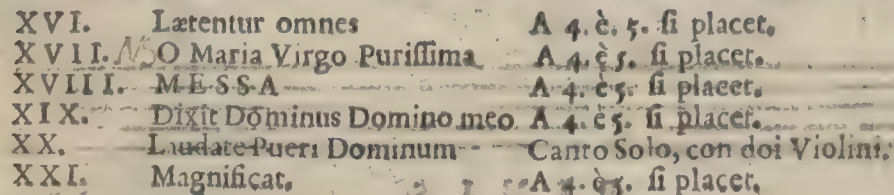 XVI. Lætentur omnes A 4. è. 5. ſi placet.
XVII. O Maria Virgo Puriſſima A 4. è 5. ſi placet.
XVIII. MESSA A 4. è 5. ſi placet.
XIX. Dixit Dominus Domino meo A 4. è 5. ſi placet.
XX. Laudate Pueri Dominum Canto Solo, con doi Violini.
XXI. Magnificat. A 4. è 5. ſi placet.